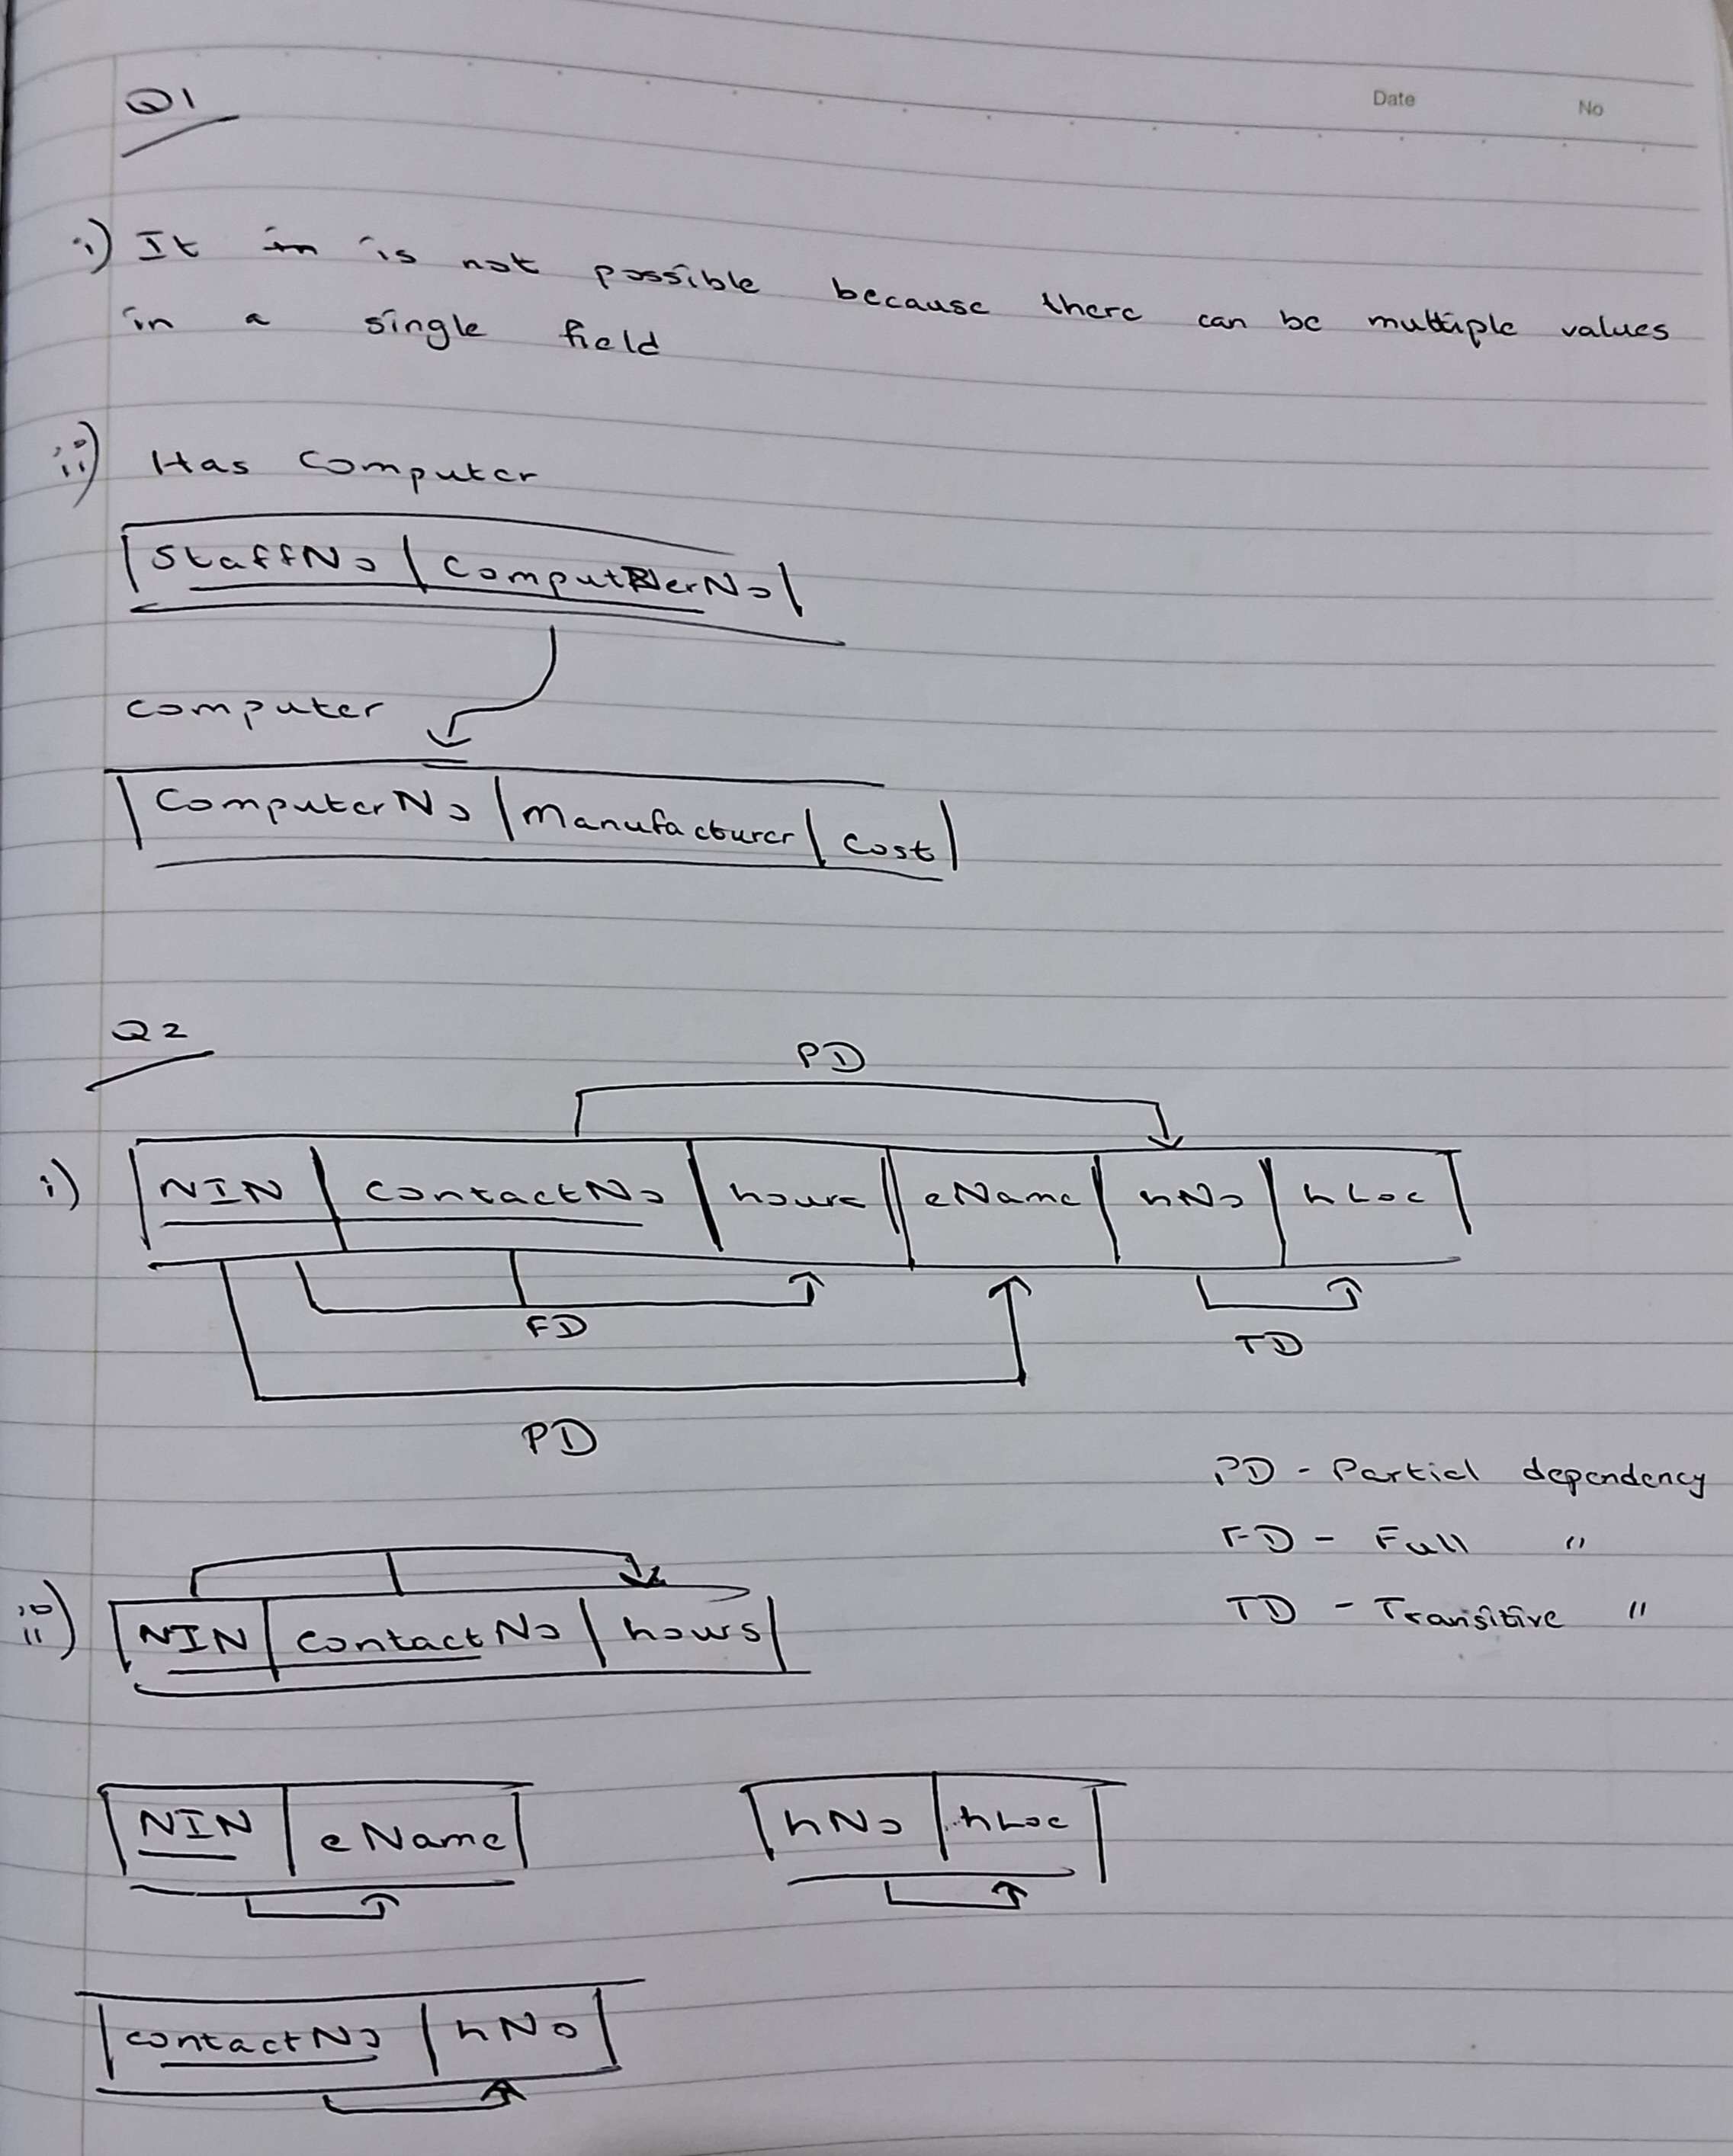 Date No
Q1
i) It is not possible because there can be multiple values
in a single field
ii) Has Computer
StaffNo | ComputerNo
computer
ComputerNo | Manufacturer | Cost
Q2
PD
i) NIN | contactNo | hours | eName | hNo | hLoc
FD
TD
PD
PD - Partial dependency
FD - Full "
TD - Transitive "
ii) NIN | contactNo | hours
NIN | eName hNo | hLoc
contactNo | hNo